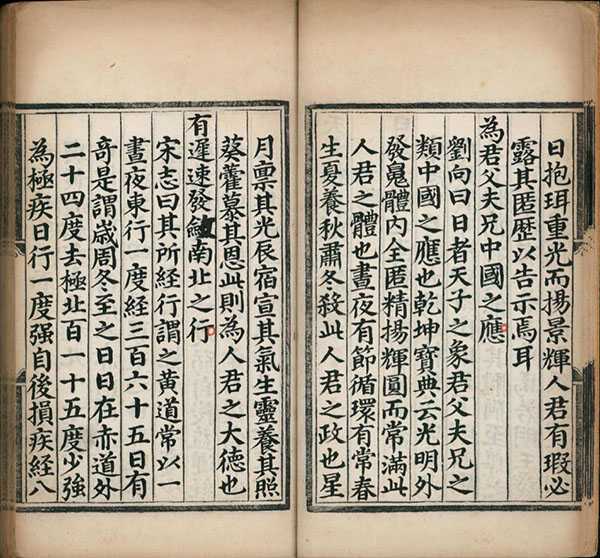 日抱珥重光而揚景輝人君有瑕必
露其匿歷以告示焉耳
為君父夫兄中國之應
劉向曰日者天子之象君父夫兄之
類中國之應也乾坤寶典云光明外
發䰟體內全匿精揚輝圓而常滿此
人君之體也晝夜有節循環有常春
生夏養秋肅冬殺此人君之政也星
月禀其光辰宿宣其氣生靈養其照
葵藿慕其恩此則為人君之大德也
有遲速發斂南北之行
宋志曰其所經行謂之黃道常以一
晝夜東行一度經三百六十五日有
奇是謂歲周冬至之日日在赤道外
二十四度去極北百一十五度少強
為極疾日行一度强自後損疾經八